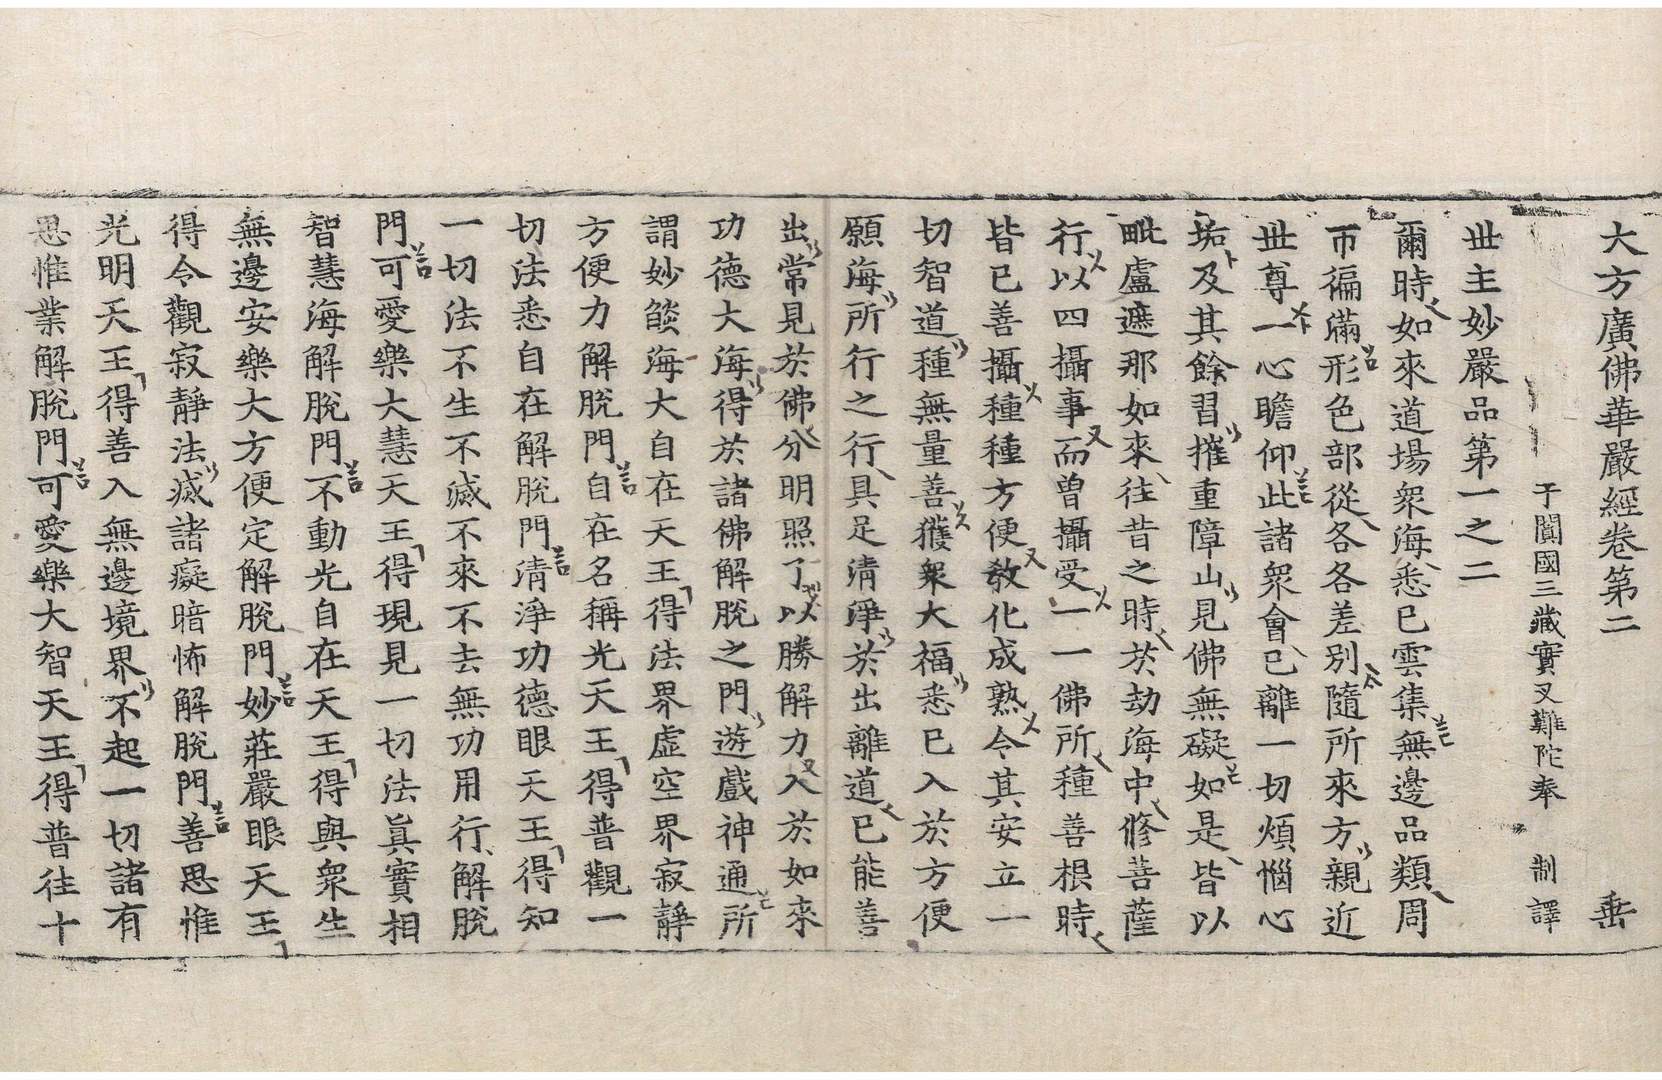 大方廣佛華嚴經卷第二 垂
于闐國三藏實叉難陀奉 制譯
世主妙嚴品第一之二
爾時如來道場衆海悉已雲集無邊品類周
帀徧滿形色部從各各差別隨所來方親近
世尊一心瞻仰此諸衆會已離一切煩惱心
垢及其餘習摧重障山見佛無礙如是皆以
毗盧遮那如來往昔之時於劫海中修菩薩
行以四攝事而曾攝受一一佛所種善根時
皆已善攝種種方便敎化成熟令其安立一
切智道種無量善獲衆大福悉已入於方便
願海所行之行具足清淨於出離道已能善
出常見於佛分明照了以勝解力入於如來
功德大海得於諸佛解脫之門遊戲神通所
謂妙㷔海大自在天王得法界虛空界寂靜
方便力解脫門自在名稱光天王得普觀一
切法悉自在解脫門清淨功德眼天王得知
一切法不生不滅不來不去無功用行解脫
門可愛樂大慧天王得現見一切法眞實相
智慧海解脫門不動光自在天王得與衆生
無邊安樂大方便定解脫門妙莊嚴眼天王
得令觀寂靜法滅諸癡暗怖解脫門善思惟
光明天王得善入無邊境界不起一切諸有
思惟業解脫門可愛樂大智天王得普往十